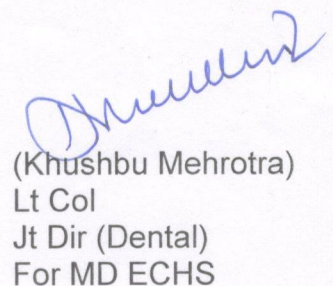 (Khushbu Mehrotra)
Lt Col
Jt Dir (Dental)
For MD ECHS